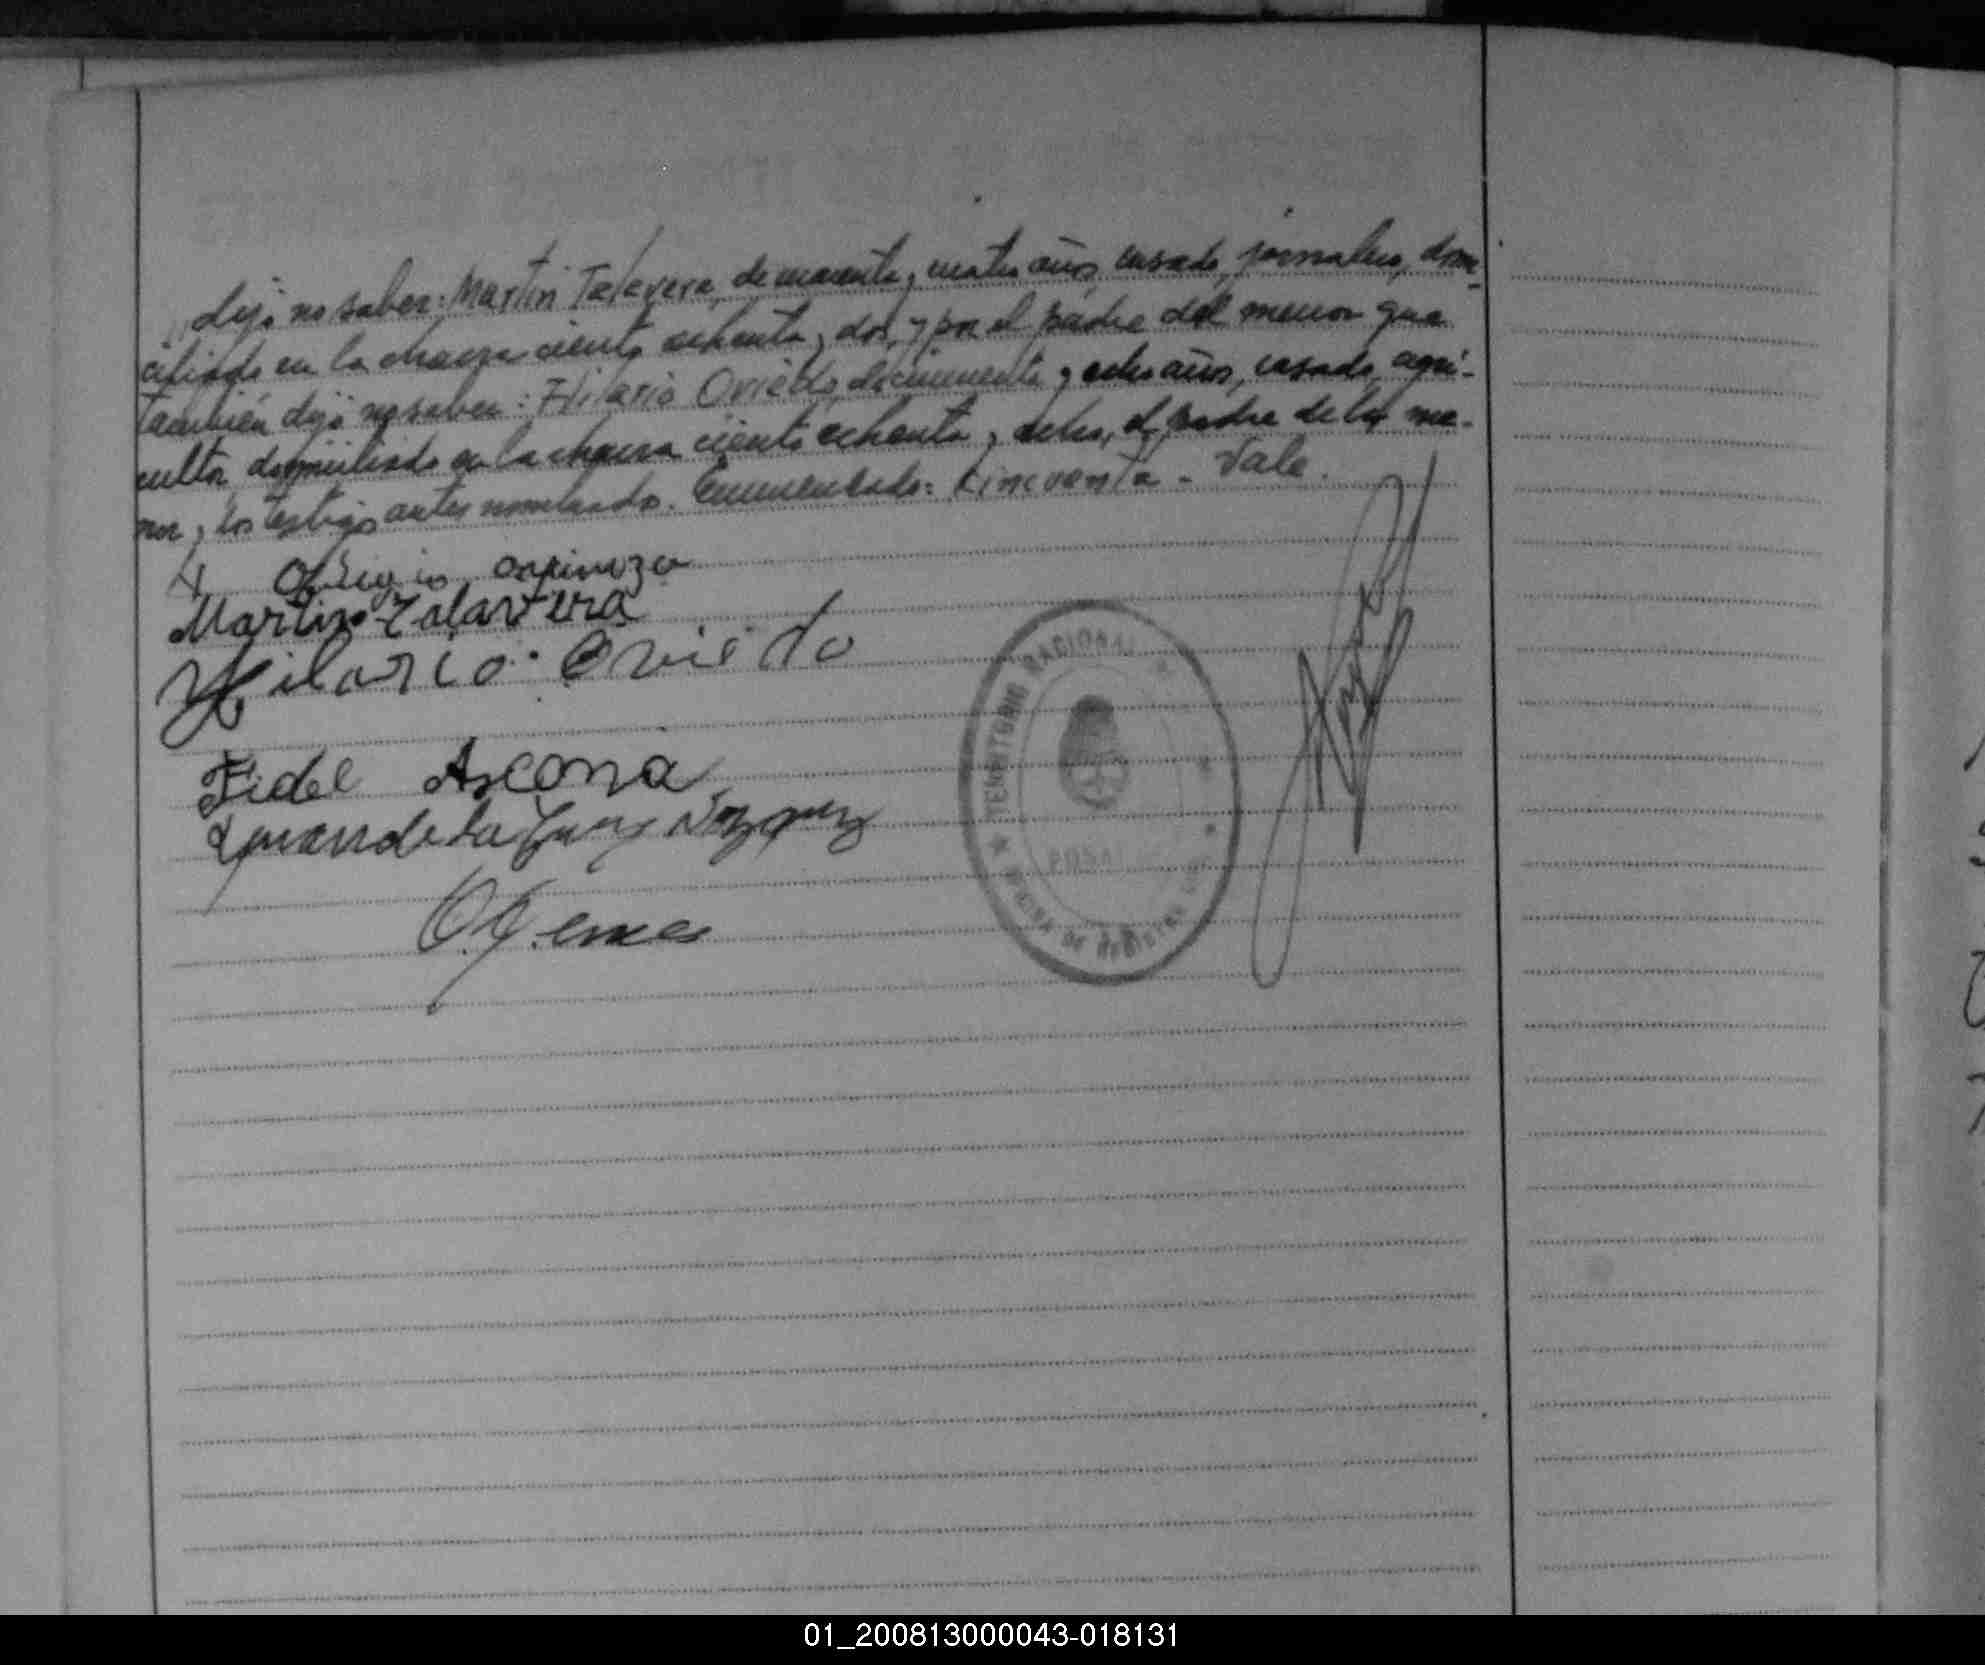 dijo no saber: Martin Talavera, de cuarenta y cuatro años, casado, jornalero, domi-
ciliado en la chacra ciento ochenta y dos, y por el padre del menor que
también dijo no saber: Hilario Oviedo, de cincuenta y ocho años, casado, agri-
cultor, domiciliado en la chacra ciento ochenta y ocho, el padre de la me-
nor y los testigos antes nombrado. Enmendado: Cincuenta - Vale.
espinoza
Martin Talavera
Hilario Oviedo
Fidel Ascona
Juan de la Cruz Vazquez
TERRITORIO NACIONAL
POSA
01_200813000043-018131